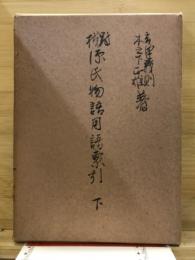 吉澤義則
木之下正雄 著
對校 源氏物語用語索引 下